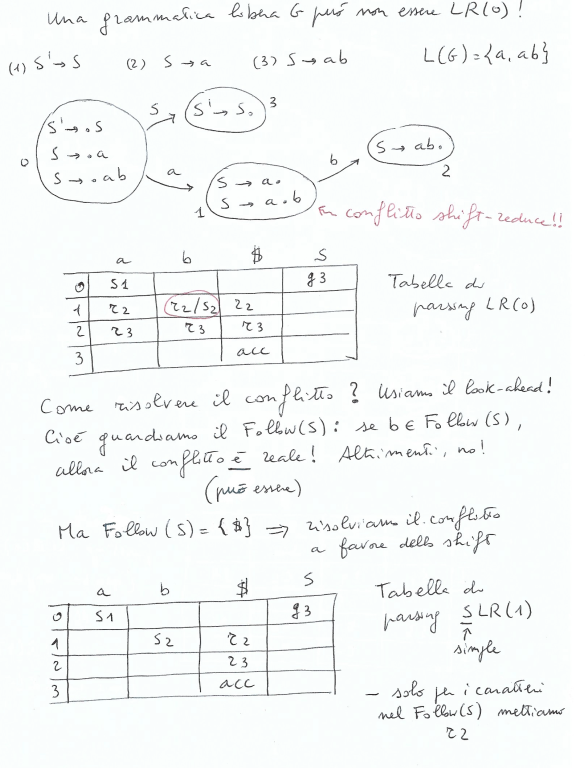 Una grammatica libera G può non essere LR(0)!
(1) S' → S (2) S → a (3) S → ab L(G) = {a, ab}
S
S' → S. 3
S' → .S
S → .a
S → .ab
0
a
S → a.
S → a.b
1
b
S → ab.
2
← conflitto shift-reduce!!
a b $ S
0 S1 g3
1 r2 r2/S2 r2
2 r3 r3 r3
3 acc
Tabella di
parsing LR(0)
Come risolvere il conflitto? Usiamo il look-ahead!
Cioè guardiamo il Follow(S): se b ∈ Follow(S),
allora il conflitto è reale! Altrimenti, no!
(può essere)
Ma Follow(S) = {$} ⇒ risolviamo il conflitto
a favore dello shift
a b $ S
0 S1 g3
1 S2 r2
2 r3
3 acc
Tabella di
parsing SLR(1)
↑
simple
– solo per i caratteri
nel Follow(S) mettiamo
r2